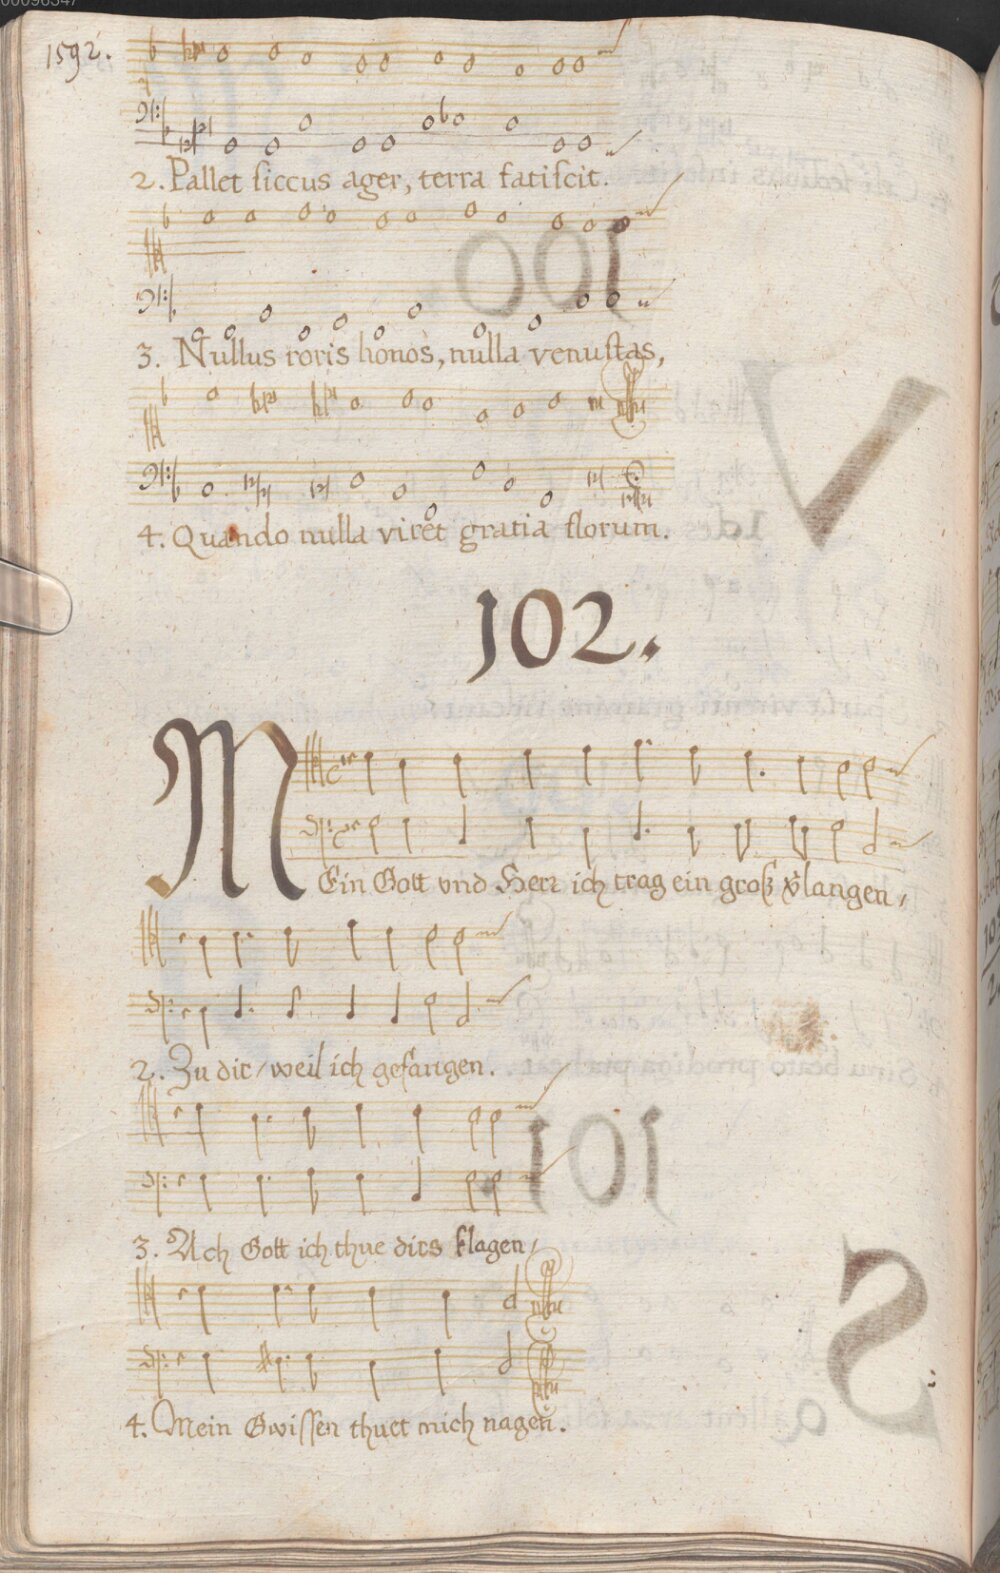 00096347
1592.
2. Pallet ſiccus ager, terra fatiſcit.
3. Nullus roris honos, nulla venuſtas,
4. Quando nulla viret gratia florum.
102.
MEin Gott vnd Herr ich trag ein groß v̈langen,
2. Zu dir, weil ich gefangen.
3. Ach Gott ich thue dirs klagen,
4. Mein Gwiſſen thuet mich nagen.